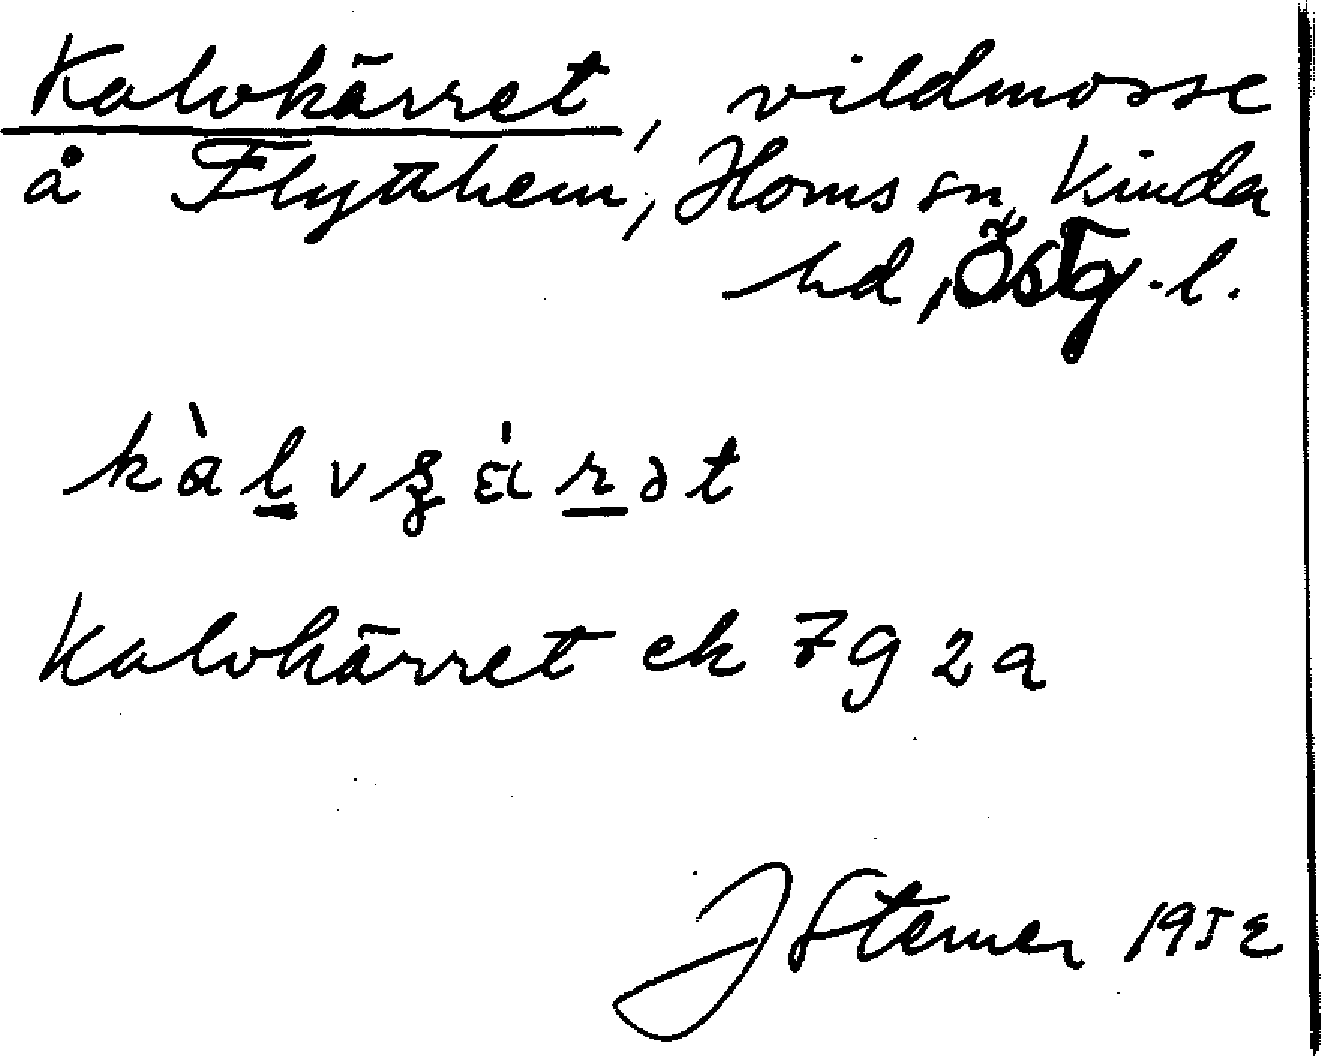 Kalvkärret, vildmosse
å Flytthem, Horns sn, Kinda
hd, Östg.l.
kàlvʂärət
Kalvkärret ek 7g 2a
J Sterner 1952